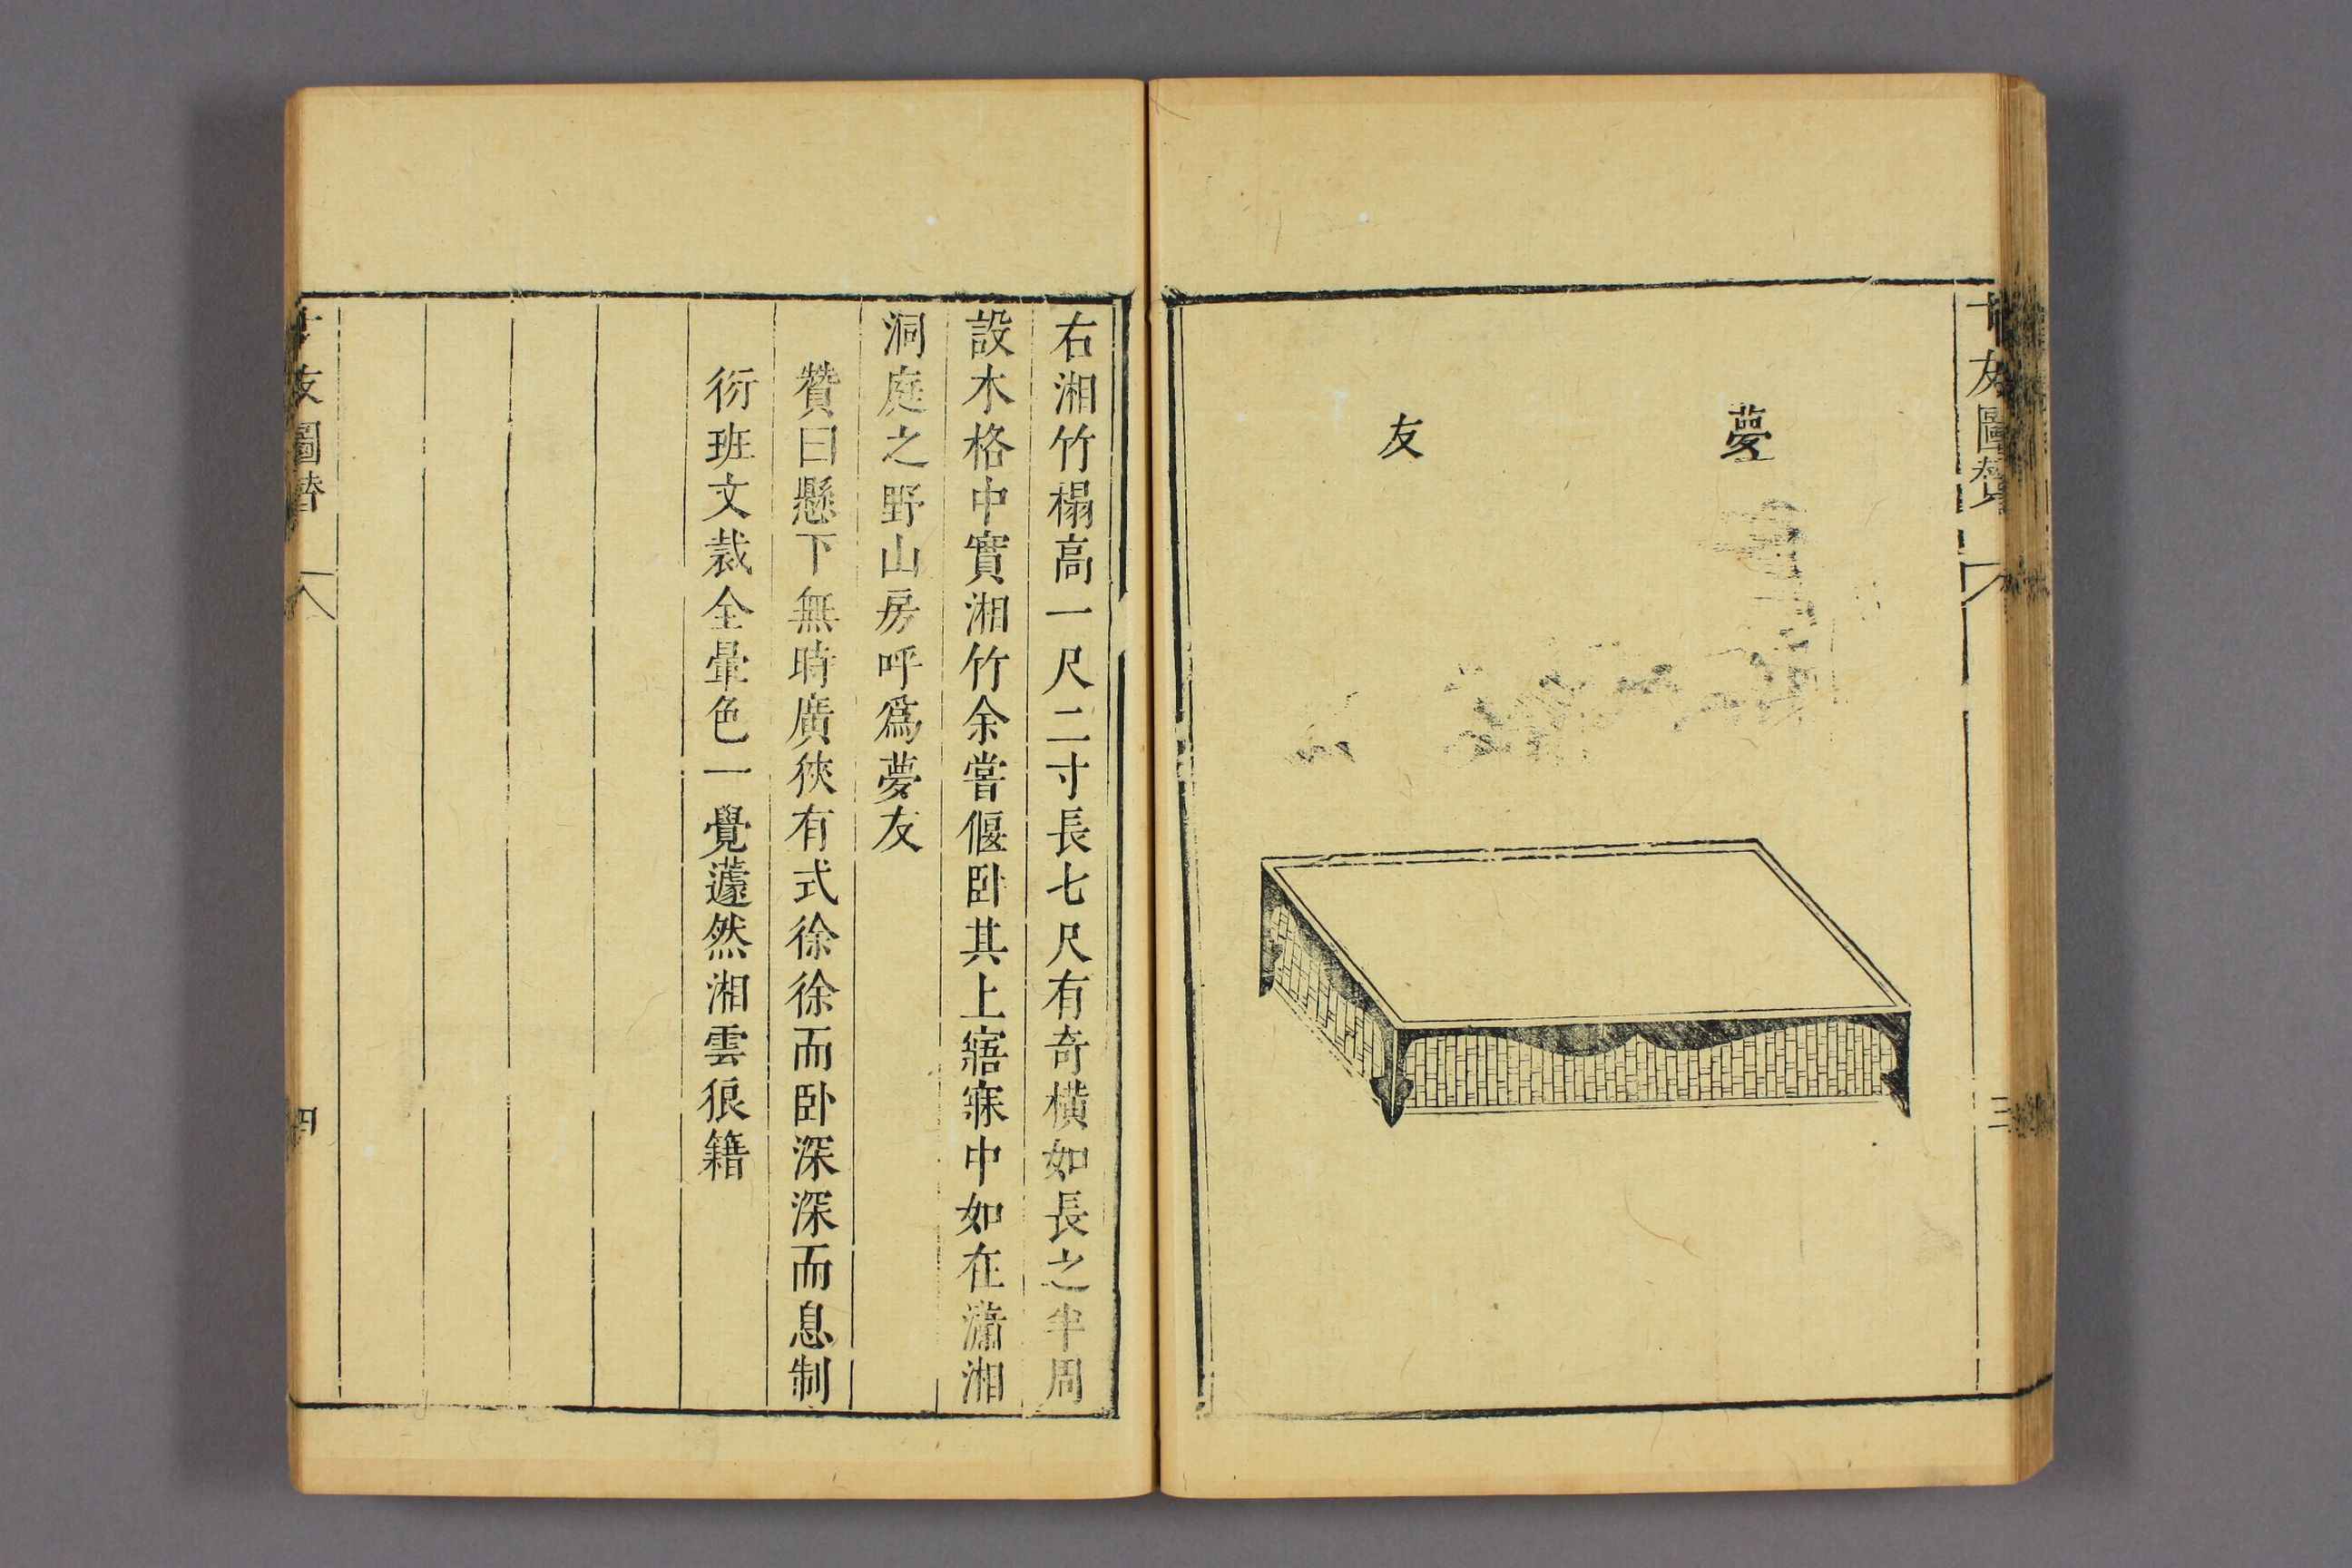 十友圖贊
三
夢友
右湘竹榻高一尺二寸長七尺有奇橫如長之半周
設木格中實湘竹余嘗偃臥其上寤寐中如在瀟湘
洞庭之野山房呼爲夢友
贊曰懸下無時廣狹有式徐徐而臥深深而息制
衍班文裁全暈色一覺蘧然湘雲狼籍
十友圖贊
四